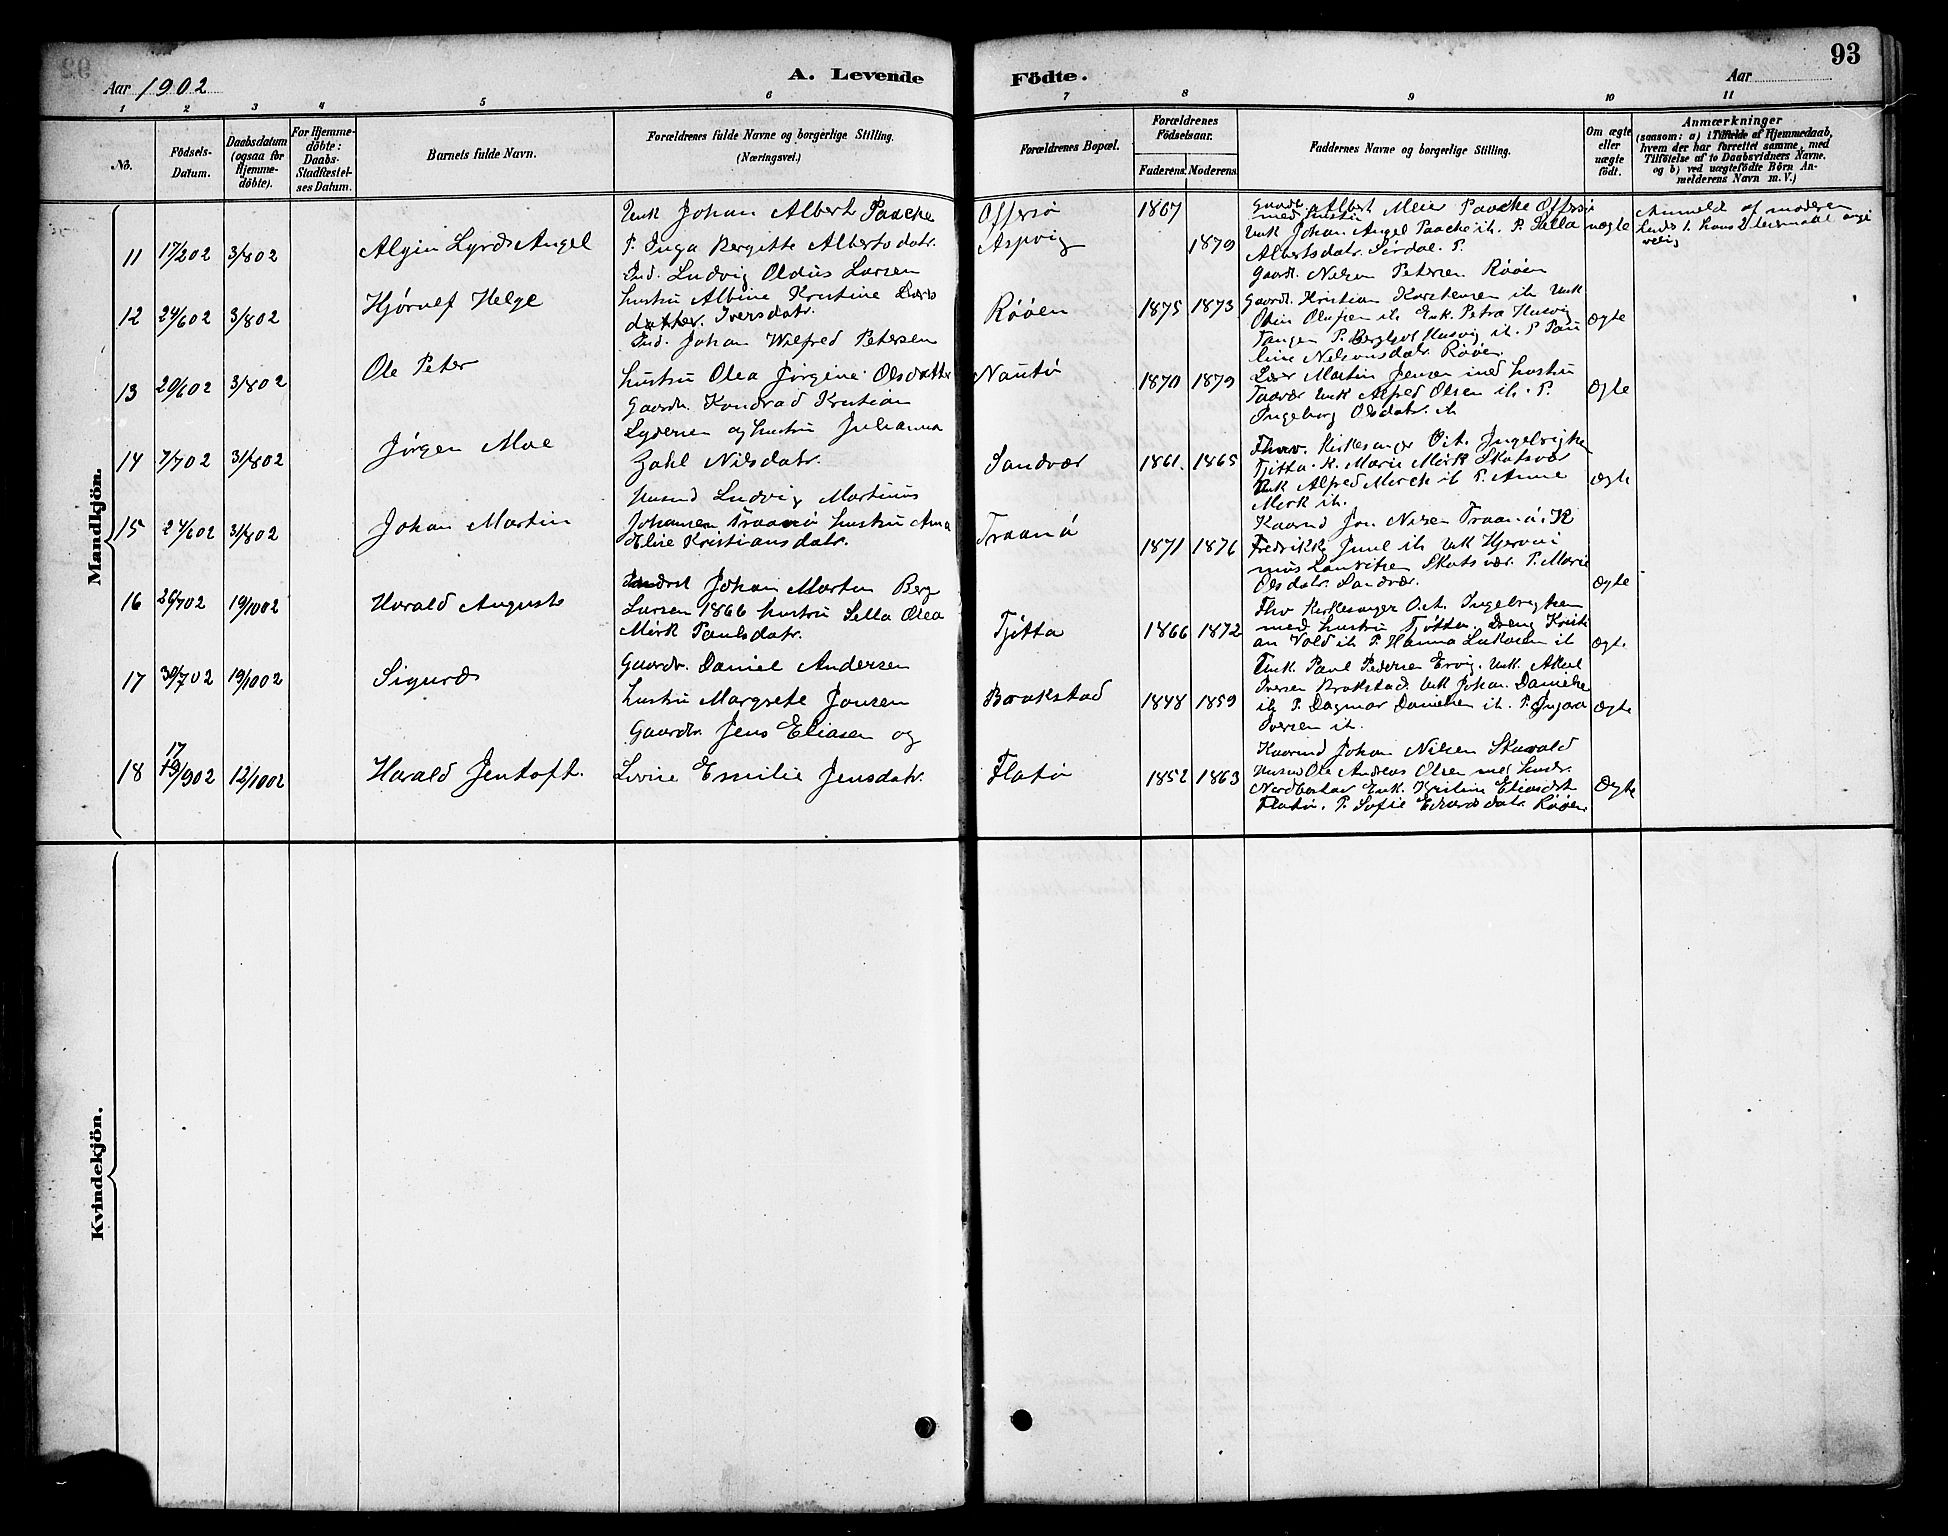 93
A. Levende Födte.
Aar 1902
Aar
1 2 3 4 5 6 7 8 9 10 11
No.
Födsels-Datum.
Daabsdatum (ogsaa for Hjemmedöbte).
For Hjemmedöbte: Daabs-Stadfæstelses Datum.
Barnets fulde Navn.
Forældrenes fulde Navne og borgerlige Stilling. (Næringsvei.)
Forældrenes Bopæl.
Forældrenes Födselsaar.
Faderens. Moderens.
Faddernes Navne og borgerlige Stilling.
Om ægte eller uægte födt.
Anmærkninger
(saasom: a) i Tilfælde af Hjemmedaab, hvem der har forrettet samme, med Tilföielse af to Daabsvidners Navne, og b) ved uægtefödte Börn Anmelderens Navn m. V.)
Mandkjön.
11 17/2 02 3/8 02 Algin Lyrds Angel
Unk Johan Albert Paacke
P. Inga Bergitte Albertsdatr.
Offersø
Aspvig
1867 1879
Gaardb. Albert Meier Paacke Offersø
med hustru
Unk Johan Angel Paacke ib. P. Silla
Albertsdatr. Sørdal. P.
uægte
Anmeldt af moderen
12 24/6 02 3/8 02 Hjørulf Helge
Ind. Ludvig Oldus Larsen
hustru Albine Kristine Lars
datter. Iversdatr.
Røøen
1875 1873
Gaardt. Nilsen Petersen Røøen
Gaardt. Kristian Karstensen ib. Unk
Odin Olufsen ib. Enk. Petra Husvig
Tangen P. Bergljot Husvig ib. P. Pau
line Nelsonsdatr. Røøen.
Ægte
13 20/6 02 3/8 02 Ole Peter
Ind. Johan Wilfred Petersen
hustru Olea Jørgine Olsdatter
Nautø
1870 1879
Martin Jensen med hustru
Unk Alfred Olsen ib. P.
Ingeborg Olsdatr. ib
Ægte
14 7/7 02 31/8 02 Jørgen Moe
Gaardr. Kondrad Kristian
Lyderse og hustru Julianna
Zahl Nilsdatr.
Sandvær
1861. 1865
Kirkesanger O.t. Ingebrigtsen
Tjøtta. K. Marie Mörk Skatsvær
Unk Alfred Mörck ib P. Anne
Mörk ib.
Ægte
15 24/6 02 31/8 02 Johan Martin
Husmd Ludvig Martinus
Johansen Traanø hustru Ana
Elise Kristiansdatr.
Traanø
1871 1876
Kaarmd Jon Nilsen Traanø. K
Fredrikke Juul ib Unk Hjerøni
mus Lauritsen Skatsvær. P. Marie
Olsdatr. Sandvær.
Ægte
16 26/7 02 19/10 02 Harald August
Johan Morten Berg
Larsen 1866 hustru Sella Olea
Mörk Paulsdatr.
Tjøtta
1866 1872
Kirkesanger O.t. Ingebrigtsen
med hustru Tjøtta. Dreng Kristi
an Vold ib P. Hanna Lukasen ib
Ægte
17 30/7 02 19/10 02 Sigurd
Gaardr. Daniel Andersen
hustru Margrete Jonsen
Brokstad
1848 1859
Unk. Paul Pedersen Ervig. Unk. Aksel
Iversen Brokstad. Unk Johan Danielse
ib P. Dagmar Danielsen ib. P.
Iversen ib.
Ægte
18 17 19/9 02 12/10 02 Harald Jentoft.
Gaardbr. Jens Eliasen og
Lovine Emilie Jensdatr.
Flatø
1852 1863
Kaarmd Johan Nilsen Skavald
Husmd Ole Andreas Olsen med hustr.
Enk. Kristine Eliasdtr
Flatø. P. Sofie Edvardsdatr. Røøen
Ægte
Kvindekjön.